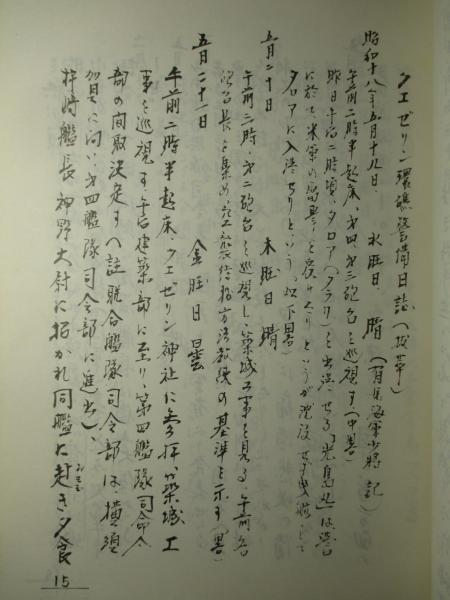 クエゼリン環礁警備日誌(抜萃)
昭和十八年五月十九日、水曜日、晴(有馬海軍少将記)
午前二時半起床、第四、第三砲台を巡視す、(中略)
昨日午后二時頃、タロア(クラリ)を出港せる「光島丸」は港口
に於て、米軍の雷撃を受けたりというが沈没せず曳航して
タロアに入港せりという、(以下略)
五月二十日 木曜日 晴
午前三時、第二砲台を巡視し、築城工事を見る、午前各
砲台長を集め、兵装教練の基準を示す(略)
五月二十一日 金曜日 曇
午前二時半起床、クエゼリン神社に参拝、築城工
事を巡視す、午后建築部に至り、第四艦隊司令
部の間取決定す(註 聯合艦隊司令部は横須
賀に向い、第四艦隊司令部に進出)、
杵崎艦長、神野大尉に招かれ同艦に赴き夕食
おもむ
15